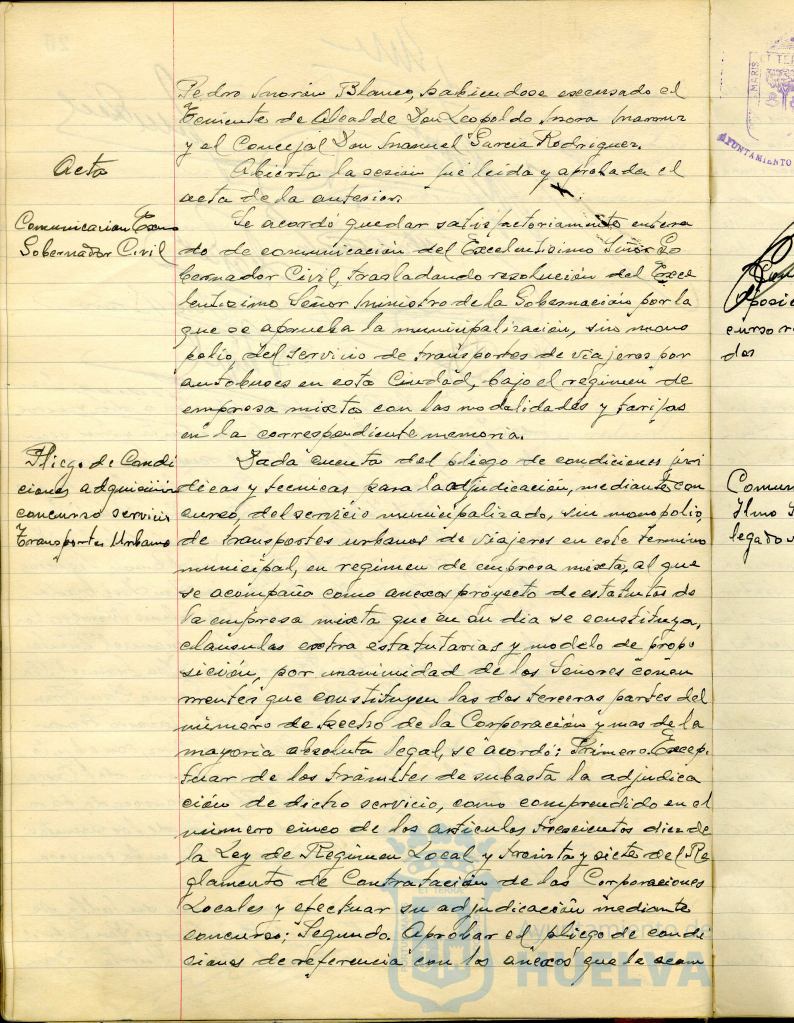 Pedro Morón Blanco, habiendose excusado el
Teniente de Alcalde Don Leopoldo Mora
y el Concejal Don Manuel Garcia Rodriguez.
Acta
Abierta la sesión fué leida y aprobada el
acta de la anterior.
Comunicacion Excmo
Gobernador Civil
Se acordó quedar satisfactoriamente entera
do de comunicación del Excelentisimo Señor Go
bernador Civil, trasladando resolución del Exce
lentisimo Señor Ministro de la Gobernación por la
que se aprueba la municipalización, sin mono
polio, del servicio de transportes de viajeros por
autobuses en esta Ciudad, bajo el regimen de
empresa mixta con las modalidades y tarifas
en la correspondiente memoria.
Pliego de Condi
ciones adquisición
concurso servicio
Transportes Urbanos
Dada cuenta del pliego de condiciones juri
dicas y tecnicas para la adjudicación, mediante con
curso, del servicio municipalizado, sin monopolio,
de transportes urbanos de viajeros en este termino
municipal, en regimen de empresa mixta, al que
se acompaña como anexos proyecto de estatutos de
la empresa mixta que en su dia se constituya,
cláusulas extra estatutarias y modelo de propo
sición, por unanimidad de los Señores concu
rrentes que constituyen las dos terceras partes del
número de hecho de la Corporación y mas de la
mayoria absoluta legal, se acordó: Primero. Excep
tuar de los trámites de subasta la adjudica
ción de dicho servicio, como comprendido en el
número cinco de los articulos trescientos diez de
la Ley de Regimen Local y treinta y siete del Re
glamento de Contratación de las Corporaciones
Locales y efectuar su adjudicación mediante
concurso; Segundo. Aprobar el pliego de condi
ciones de referencia con los anexos que le acom
HUELVA
AYUNTAMIENTO
posic
curso r
dos
Comun
Ilmo S
legado